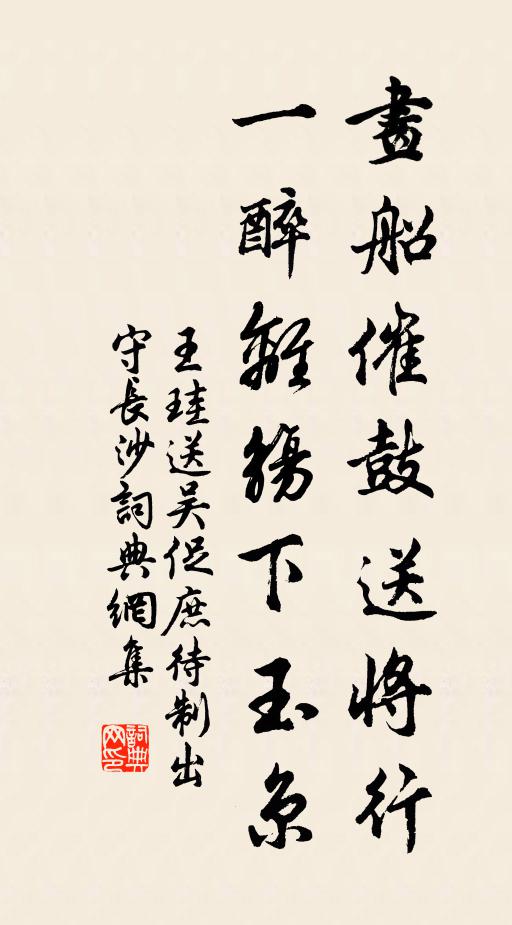 畫船催鼓送將行
一醉離觴下玉京
王珪送吳促庶待制出
守長沙詞典網集
詞典网印